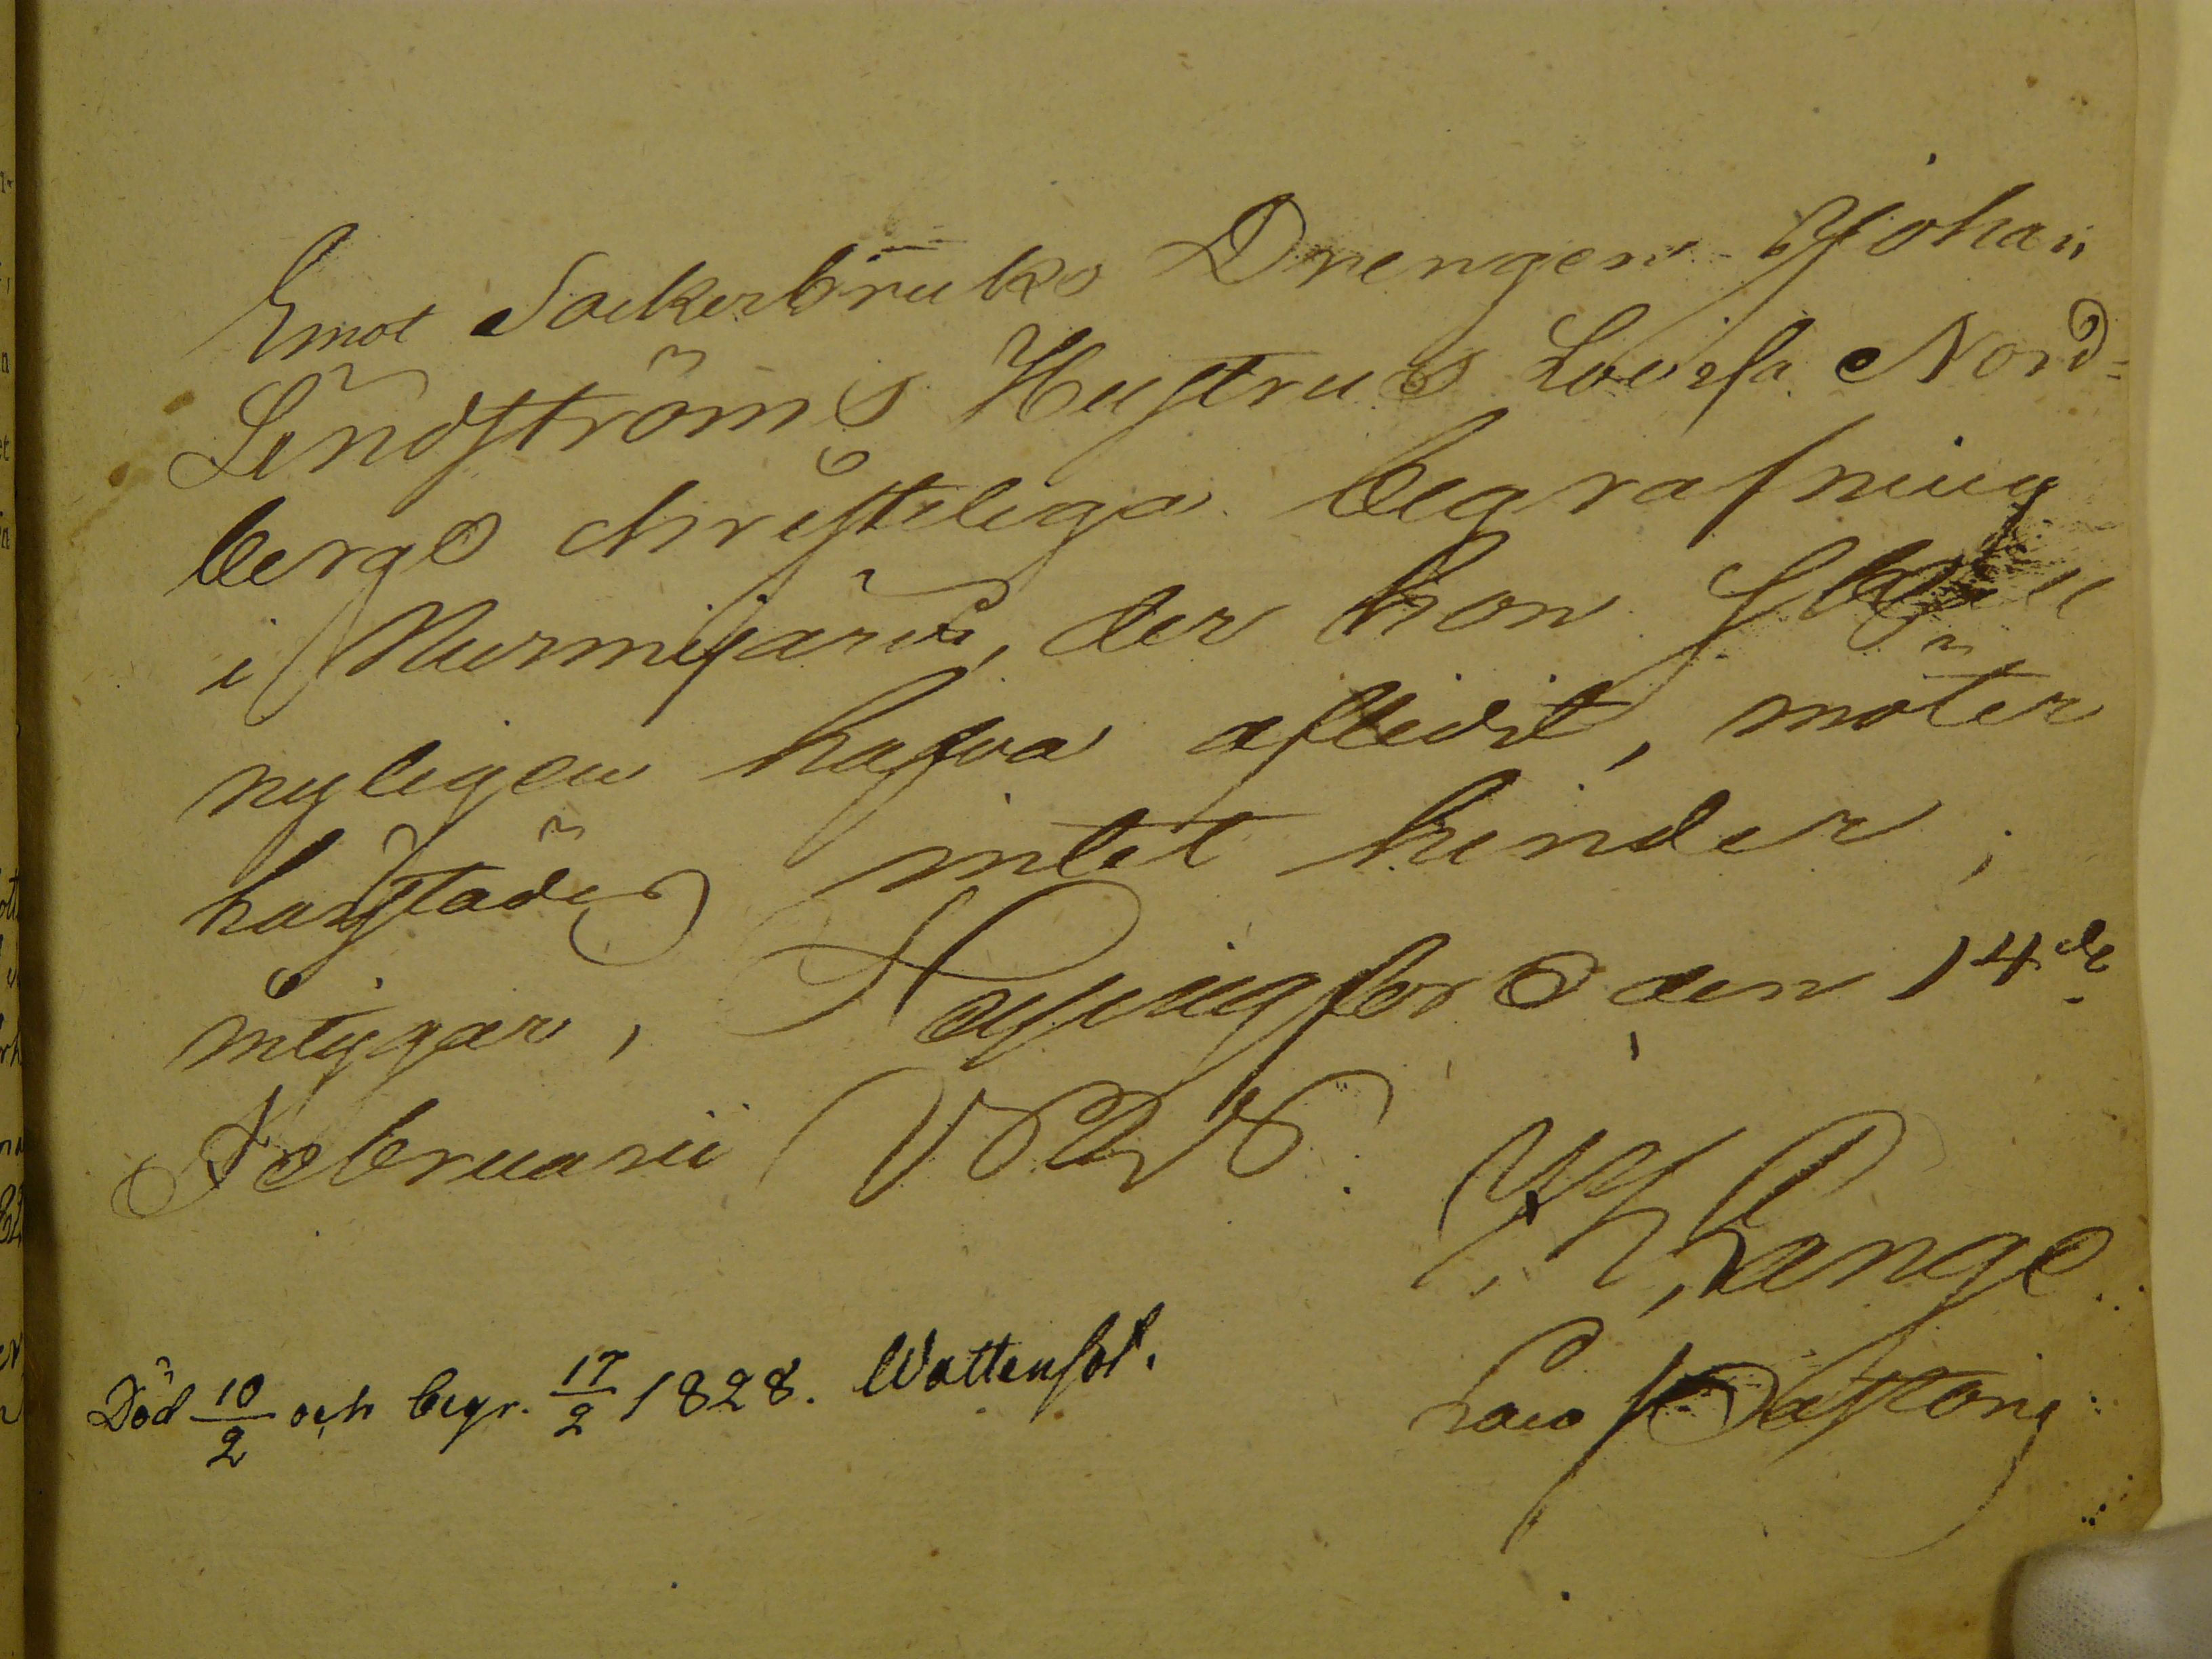 Emot Sockerbruks Drengen Johan
Lindströms Hustrus Lovisa Nord-
bergs christeliga begrafning
i Nurmijärvi, der hon skall
nyligen hafva aflidit, möter
härstädes intet hinder;
intygar, Helsingfors den 14de
Februarii 1828.
Lange
Past.
Död 10/2 och begr. 17/2 1828. Wattensot.